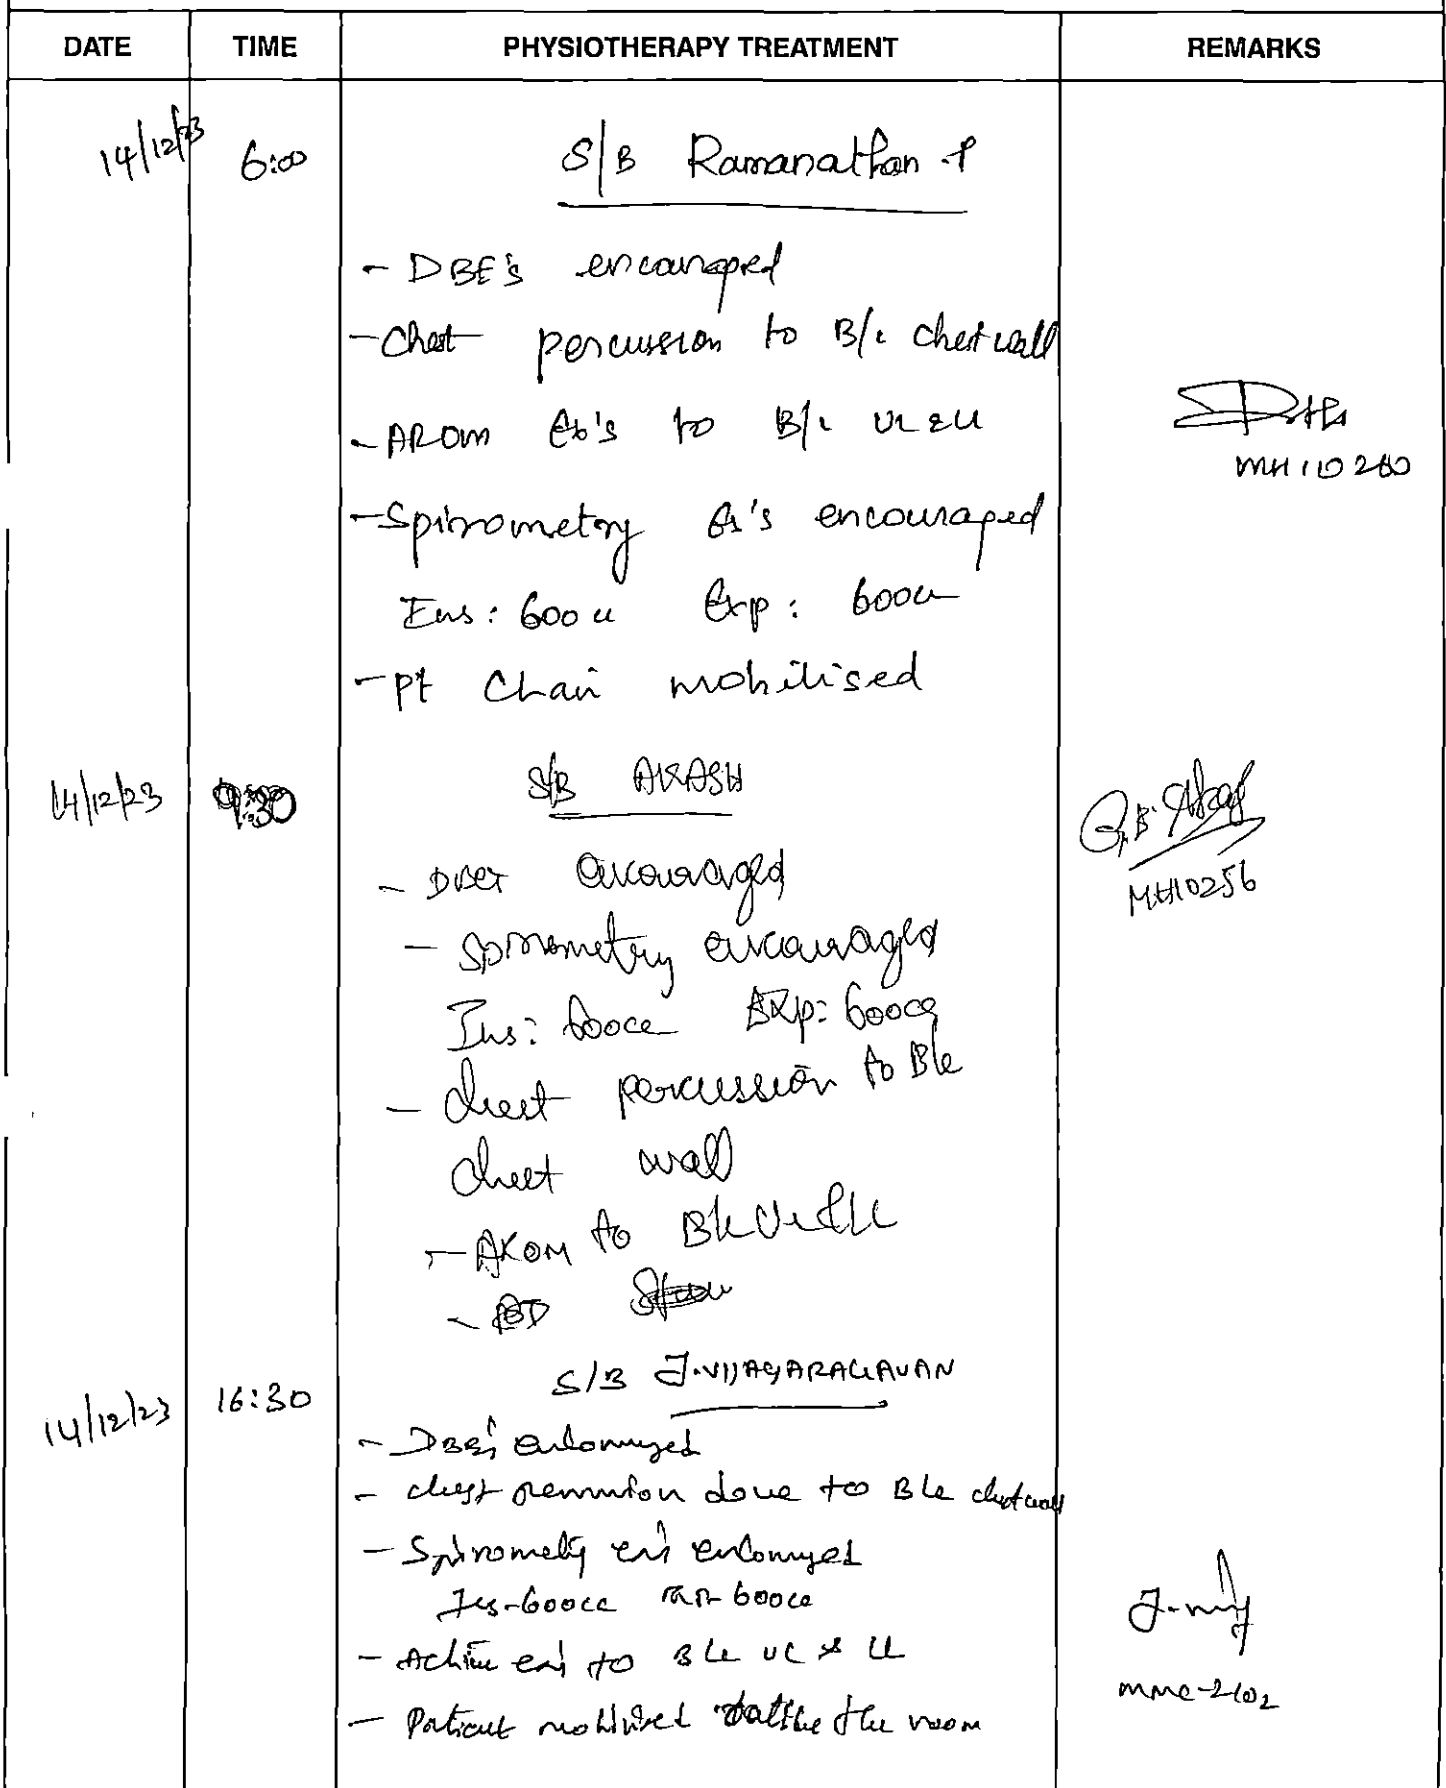 DATE TIME PHYSIOTHERAPY TREATMENT REMARKS
14/12/23 6:00 S/B Ramanathan .P
- DBE's encouraged
- Chest percussion to B/L chest wall
- AROM Ex's to B/L UL & LL
MH110260
- Spirometry Ex's encouraged
Ins: 600cc Exp: 600cc
- Pt Chair mobilised
14/12/23 9:30 S/B AKASH
MH10256
- DBE encouraged
- Spirometry encouraged
Ins: 600cc Exp: 600cc
- chest percussion to B/L
chest wall
- AROM to B/L UL & LL
14/12/23 16:30 S/B J.VIJAYARAGAVAN
- DBE's encouraged
- chest percussion done to B/L chest wall
- Spirometry ex's encouraged
Ins-600cc Exp-600cc
- Active ex's to B/L UL & LL
- Patient mobilised the room